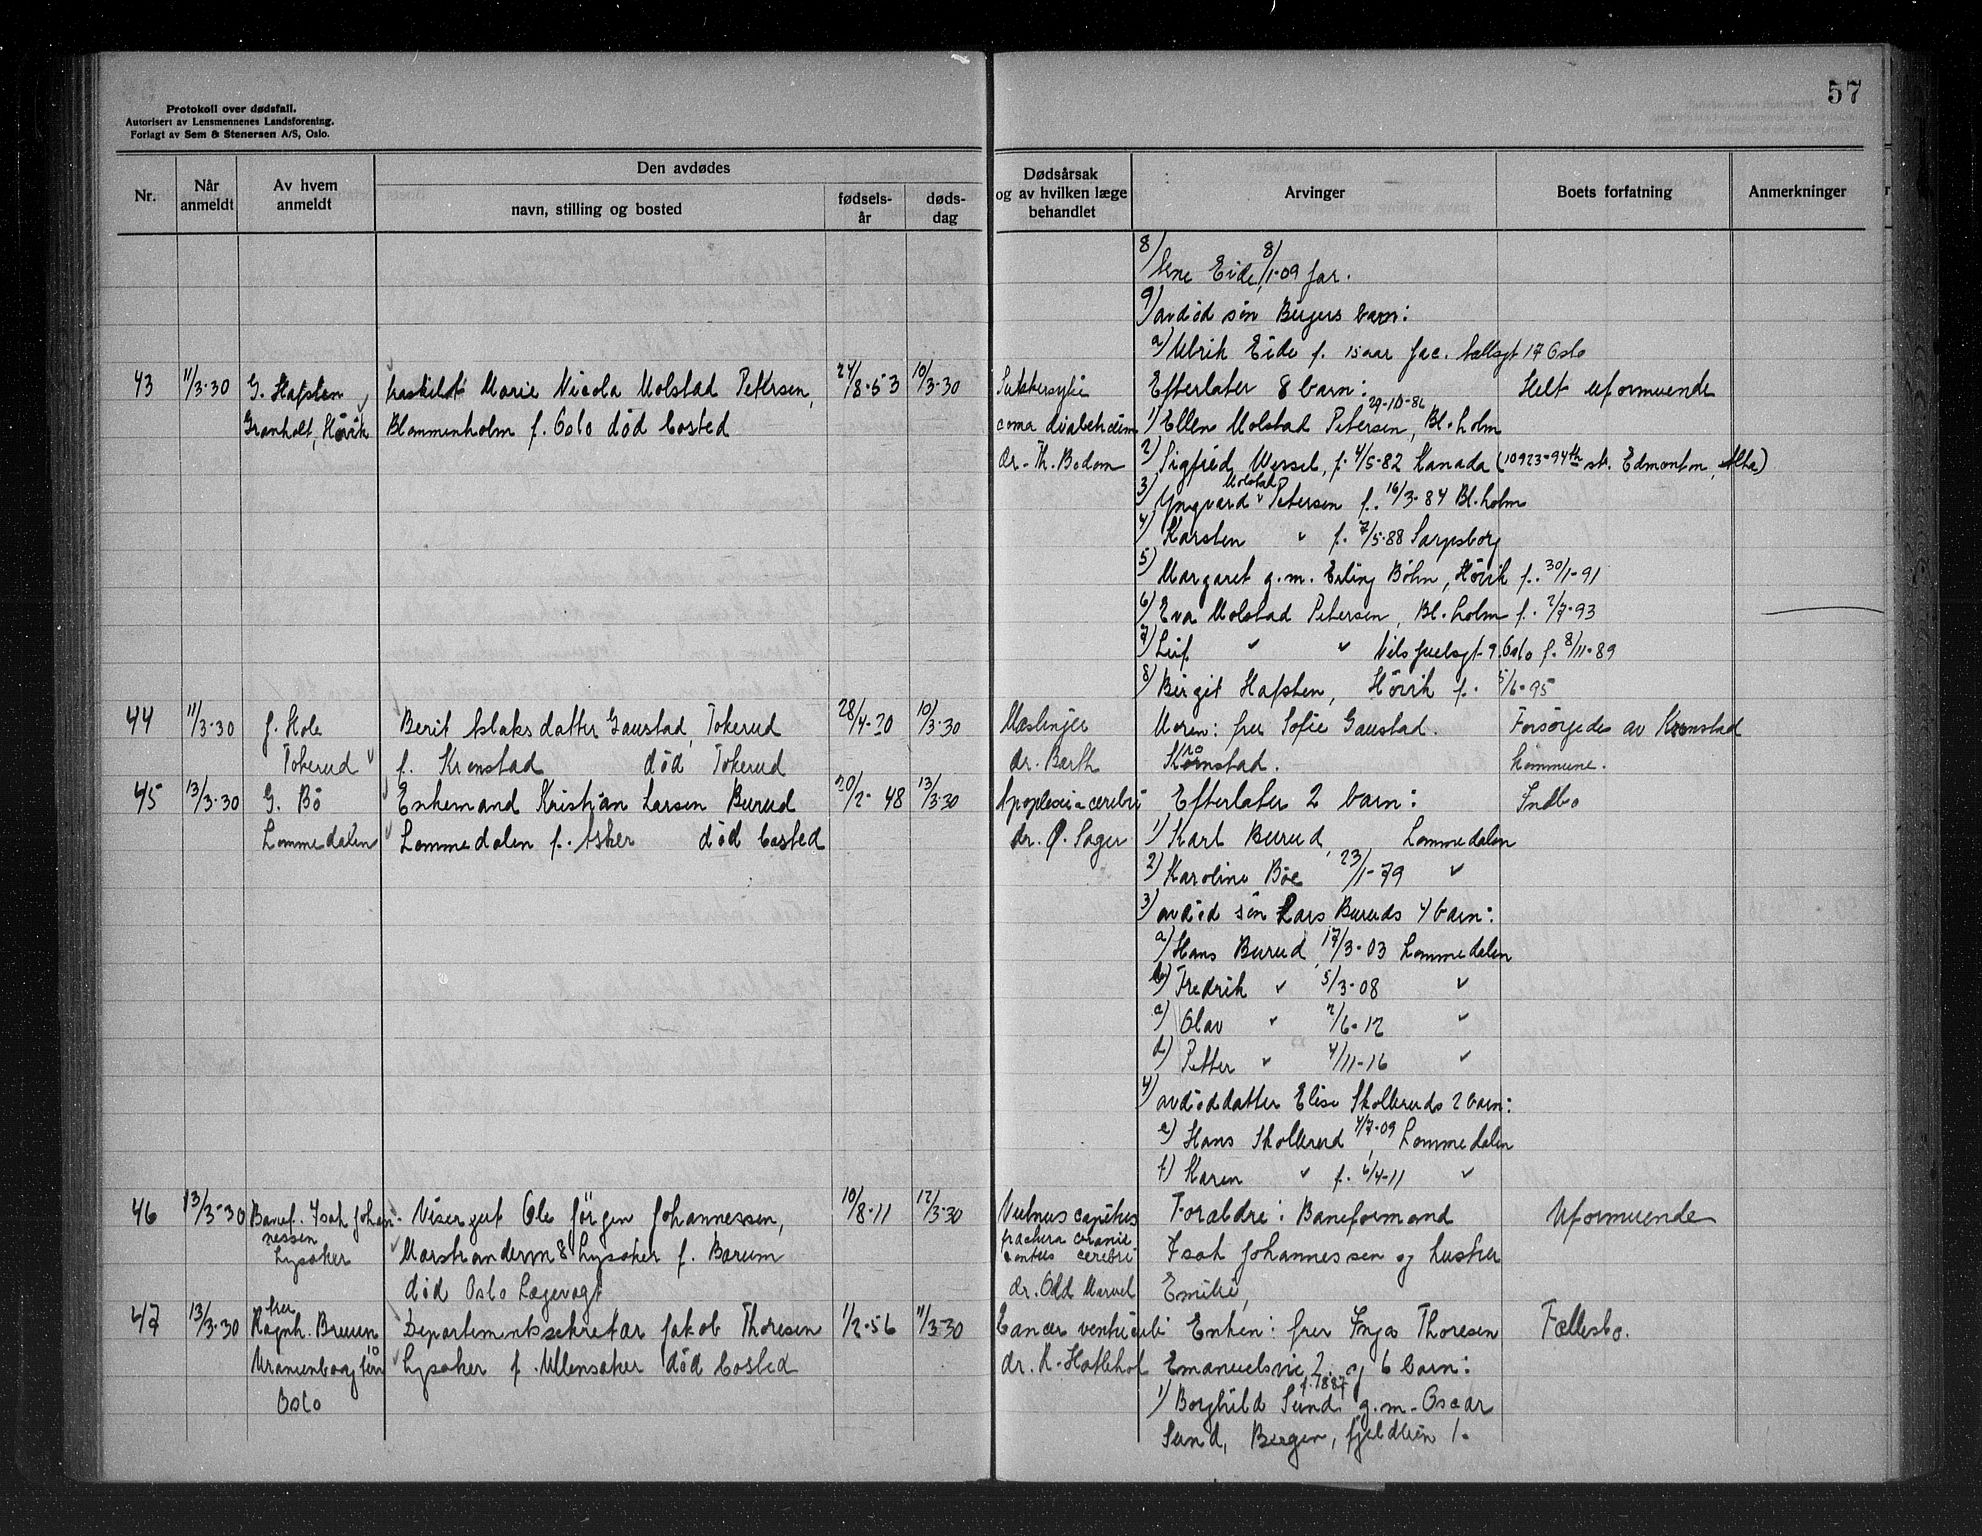 Protokoll over dødsfall.
Autorisert av Lensmennenes Landsforening.
Forlagt av Sem & Stenersen A/S, Oslo.
57
Nr.
Når anmeldt
Av hvem anmeldt
Den avdødes
navn, stilling og bosted
fødsels-år
døds-dag
Dødsårsak og av hvilken læge behandlet
Arvinger
Boets forfatning
Anmerkninger
8) Lene Eide, 8/1-09 far.
9) avdød søn Birgers barn:
a) Ulrik Eide f. 15 aar Jac. Aallsgt 17 Oslo
43 11/3-30 G. Hafsten fraskilt Marie Nicola Molstad Petersen, 24/8-53 10/3-30 Sukkersyke Efterlater 8 barn: Helt uformuende
Granholt, Høvik Blommenholm f. Oslo død bosted coma diabeticum 1) Ellen Molstad Petersen, 29-10-86 Bl.holm
dr. Th. Bodom 2) Sigfred Wessel, f. 4/5-82 Kanada (10923-94th st. Edmonton, Alta)
3) Yngvard Molstad Petersen f. 16/3-84 Bl.holm
4) Karsten " f. 7/5-88 Sarpsborg
5) Margaret g.m. Erling Bøhn, Høvik f. 30/1-91
6) Eva Molstad Petersen, Bl.holm f. 2/7-93
7) Leif " " Nils Juelsgt. 9 Oslo f. 8/11-89
8) Birgit Hafsten, Høvik f. 5/6-95
44 11/3-30 J. Hole Berit Aslaksdatter Gaustad, Tokerud 28/4-20 10/3-30 Meslinger Moren: fru Sofie Gaustad. Forsørgedes av Kornstad
Tokerud f. Kronstad død Tokerud dr. Barth Kornstad. kommune.
45 13/3-30 G. Bö Enkemand Kristian Larsen Burud 20/2-48 13/3-30 Apoplexia cerebri Efterlater 2 barn: Indbo
Lommedalen Lommedalen f. Asker død bosted dr. P. Sager 1) Karl Burud, Lommedalen
2) Karoline Böe 23/1-79 "
3) avdød søn Lars Buruds 4 barn:
a) Hans Burud, 17/3-03 Lommedalen
b) Fredrik " 5/3-08 "
c) Olav " 2/6-12 "
d) Petter " 4/11-16 "
4) avdød datter Elise Skolleruds 2 barn:
e) Hans Skollerud 4/7-09, Lommedalen
f) Karen " f. 6/4-11 "
46 13/3-30 Banef. Isak Johan- Visergut Ole Jörgen Johannessen, 10/8-11 12/3-30 Vulnus capitis Forældre: Baneformand Uformuende
nessen Lysaker Marstranderrn 8 Lysaker f. Bærum fractura cranii contus cerebri Isak Johannessen og hustru
død Oslo Lægevagt dr. Odd Marvel Emilie,
47 13/3-30 fru Ragnh. Bruun Departementssekretær Jakob Thoresen 1/2-56 11/3-30 Cancer ventriculi Enken: fru Inga Thoresen Fællesbo.
Uranienborg Lysaker f. Ullensaker død bosted dr. K. Emanuelsvei 2 og 6 barn:
Oslo 1) Borghild Sund f. 1887 g.m. Oscar
Sund, Bergen, Fjeldlien 1.